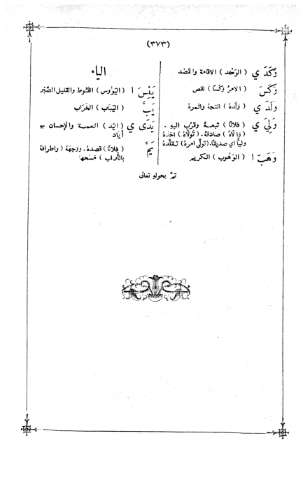 (٣٧٣)
وَكَدَ ي ( الوَكْد ) الاقامة والقصد
وَكَسَ ( الامرُ وَكْسًا ) نقص
وَلَدَ ي ( ولدة ) النتجة والمرة
وَلِيَ ي ( فلانًا ) تبعهُ وقرُب اليهِ .
( والاهُ ) صادقهُ . ( تولَّاهُ ) اتخذهُ
وليًّا اي صديقًا . ( تولى امرهُ ) تقلَّدهُ
وَهَبَ ا ( الوَهُوب ) الكريم
الياء
يَئِسَ ا ( اليَؤُوس ) القَنُوط والقليل الصَّبر
يَبَّ ( اليَبَاب ) الخراب
يَدَى ي ( اليد ) النعمة والاحسان ج
أَيَادٍ
يَمَّ ( فلانًا ) قصدهُ .
تمَّ بحولهِ تعالى